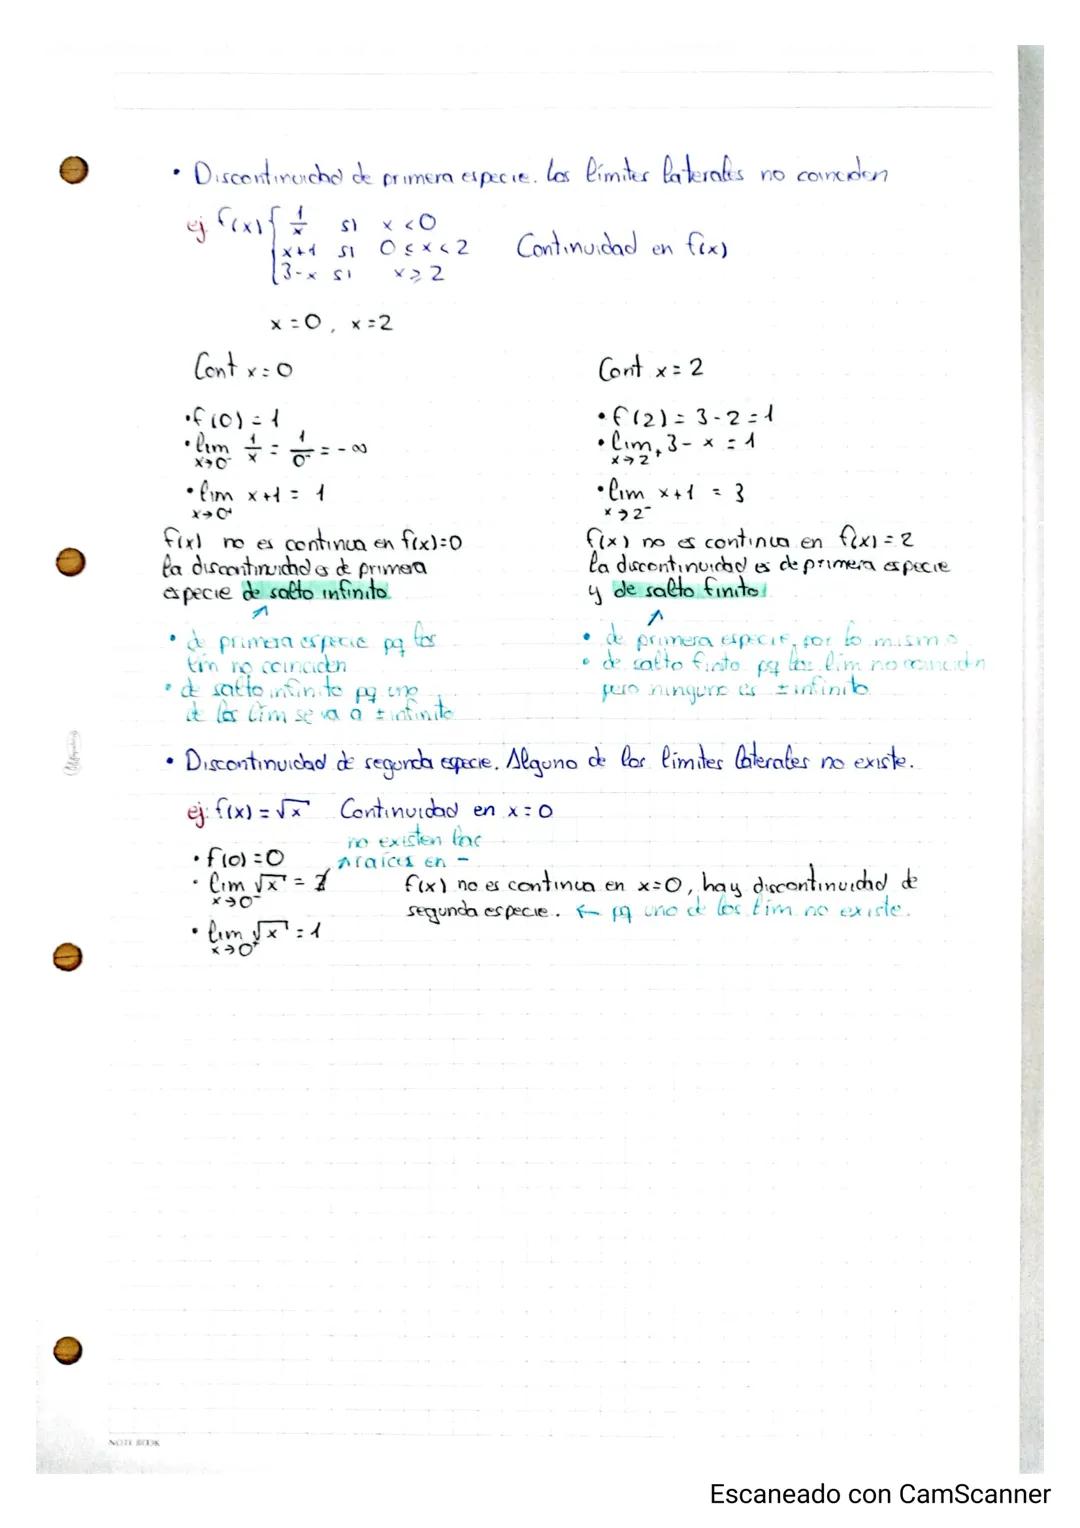 • Discontinuidad de primera especie. Los límites laterales no coinciden
ej. f(x) { 1/x si x < 0
x+1 si 0 ≤ x < 2 Continuidad en f(x)
3-x si x ≥ 2
x = 0, x = 2
Cont x = 0
• f(0) = 1
• lim x→0⁻ 1/x = 1/0⁻ = -∞
• lim x→0⁺ x+1 = 1
f(x) no es continua en f(x)=0
la discontinuidad es de primera
especie de salto infinito
• de primera especie pq los
lim no coinciden
• de salto infinito pq uno
de los lim se va a ± infinito
Cont x = 2
• f(2) = 3-2 = 1
• lim x→2⁺ 3-x = 1
• lim x→2⁻ x+1 = 3
f(x) no es continua en f(x) = 2
la discontinuidad es de primera especie
y de salto finito
• de primera especie, por lo mismo
• de salto finito pq los lim no coinciden
pero ninguno es ± infinito
• Discontinuidad de segunda especie. Alguno de los límites laterales no existe.
ej: f(x) = √x Continuidad en x = 0
no existen las
raíces en -
• f(0) = 0
• lim x→0⁻ √x = ∄
• lim x→0⁺ √x = 1
f(x) no es continua en x=0, hay discontinuidad de
segunda especie. ← pq uno de los lim no existe.
NOTE BOOK
Escaneado con CamScanner